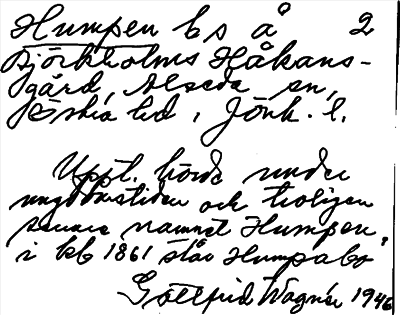 Humpen bs å 2
Björkholms Håkans-
gård, Alseda sn,
Östra hd, Jönk. l.
Uppt. hörde under
ungdomstiden och troligen
senare namnet Humpen,
i kb 1861 står Humpabo
Gottfrid Wagnér 1946